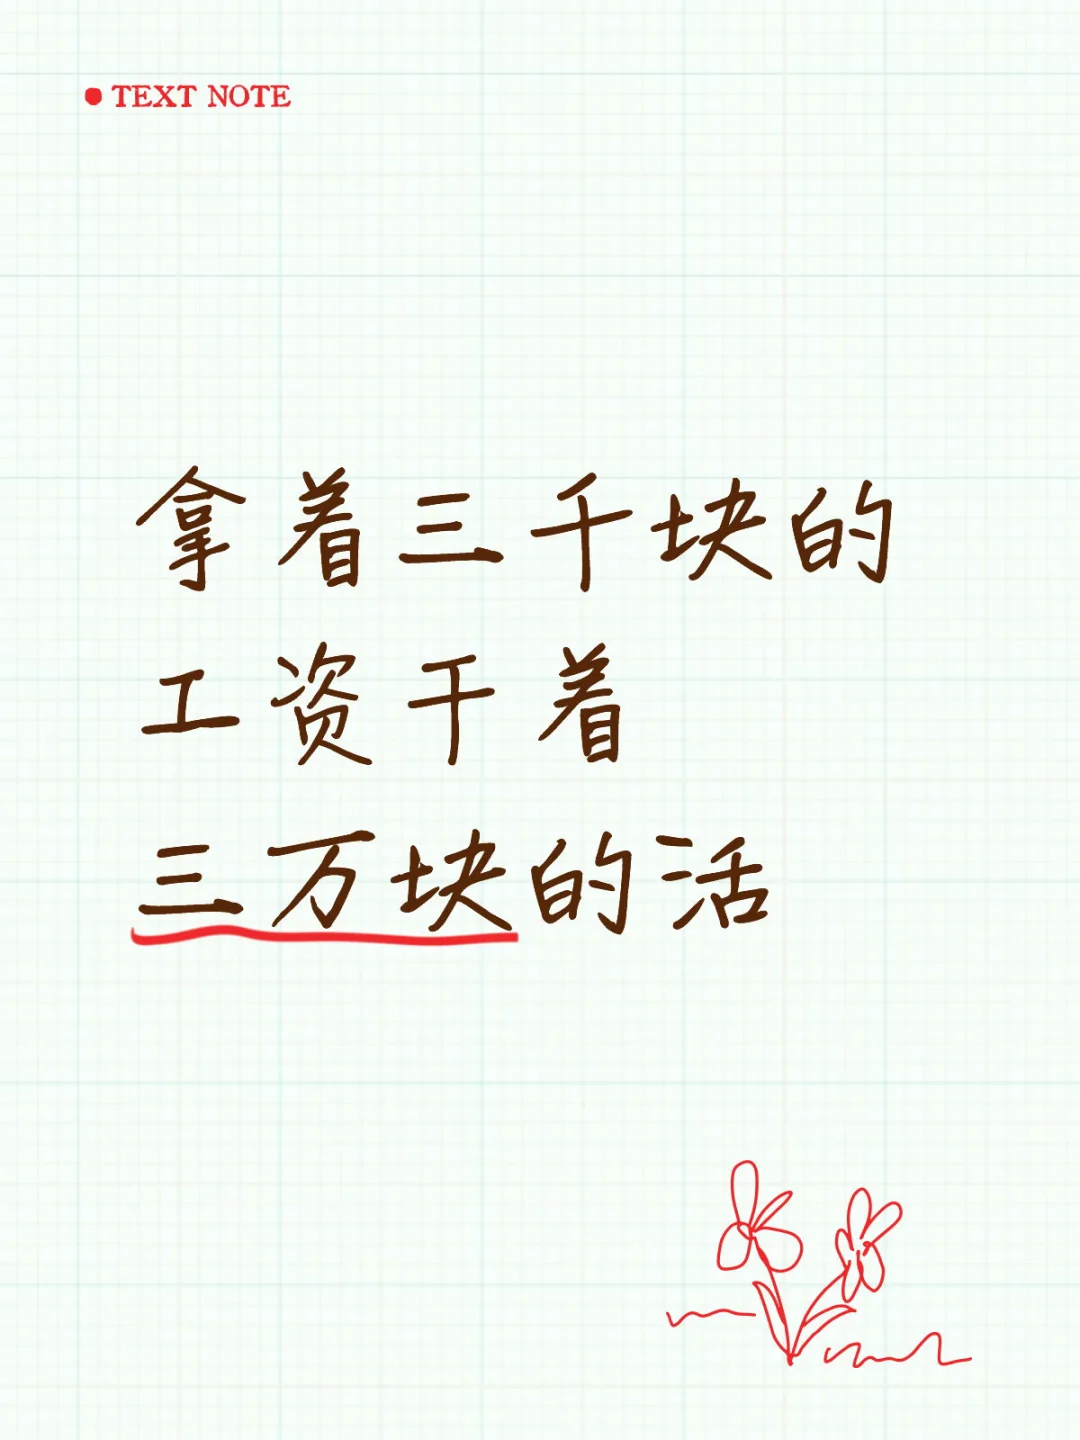 TEXT NOTE
拿着三千块的
工资干着
三万块的活